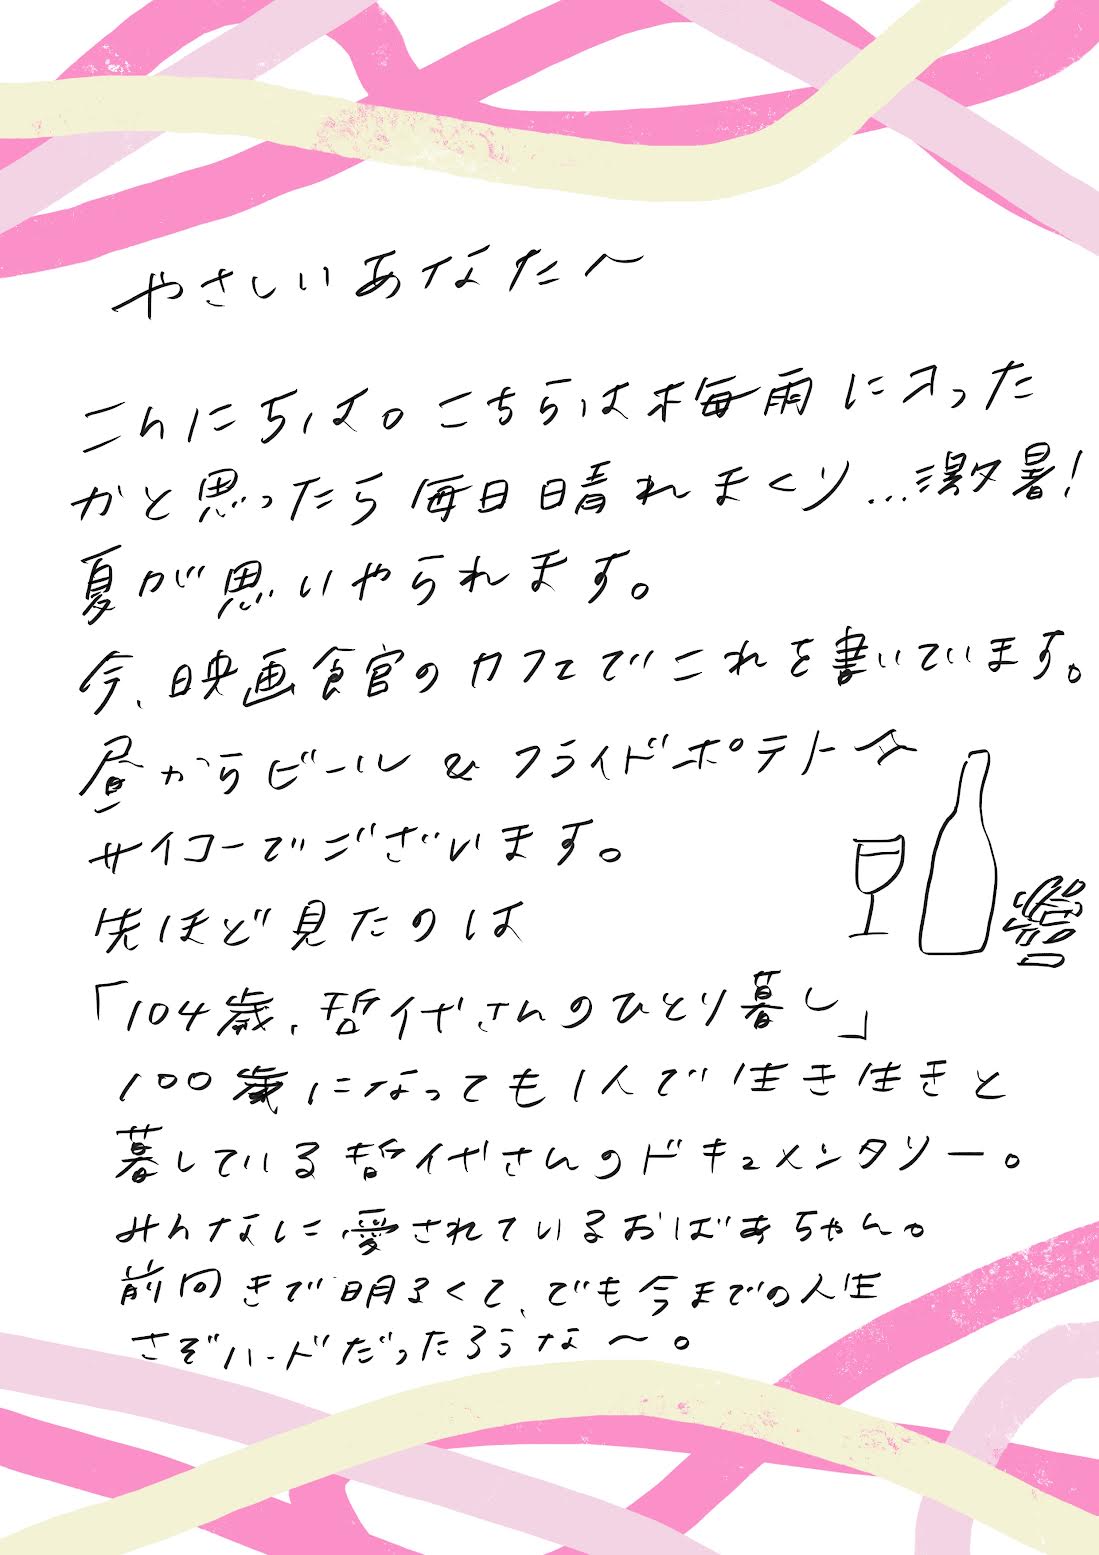 やさしいあなたへ
こんにちは。こちらは梅雨に入った
かと思ったら毎日晴れまくり...激暑!
夏が思いやられます。
今、映画食官のカフェでこれを書いています。
昼からビール&フライドポテト☆
サイコーでございます。
先ほど見たのは
「104歳、哲代さんのひとり暮し」
100歳になっても1人で生き生きと
暮している哲代さんのドキュメンタリー。
みんなに愛されているおばあちゃん。
前向きで明るくて、でも今までの人生
さぞハードだったろうな〜。